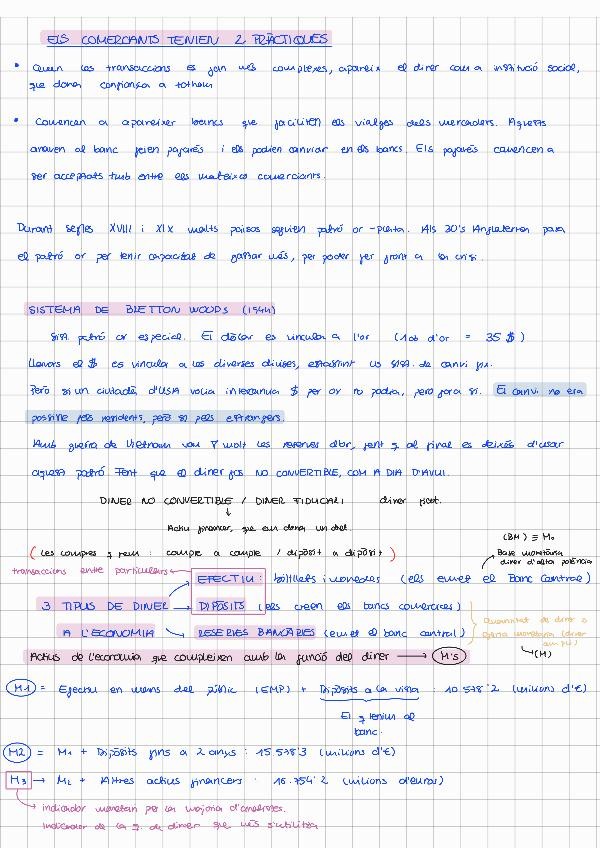 ELS COMERCIANTS TENIEN 2 PRÀCTIQUES
• Quan les transaccions es fan més complexes, apareix el diner com a institució social,
que dona confiança a tothom
• Comencen a apareixer bancs que faciliten els viatges dels mercaders. Aquests
anaven al banc feien pagarés i els podien canviar en els bancs. Els pagarés comencen a
ser acceptats tmb entre els mateixos comerciants.
Durant segles XVIII i XIX molts països seguien patró or - plata. Als 30's Anglaterra para
el patró or per tenir capacitat de gastar més, per poder fer front a la crisi.
SISTEMA DE BRETTON WOODS (1944)
Sist. patró or especial. El dòlar es vincula a l'or (1ob d'or = 35 $)
Llavors el $ es vincula a les diverses divises, establint us sist. de canvi fix.
Però si un ciutadà d'USA volia intercanviar $ per or no podia, però fora si. El canvi no era
possible pels residents, però si pels estrangers.
Amb guerra de Vietnam van ↑ molt les reserves d'or, fent q al final es deixés d'usar
aquest patró. Fent que el diner fos NO CONVERTIBLE, COM A DIA D'AVUI.
DINER NO CONVERTIBLE / DINER FIDUCIARI diner
↓
Actiu financer, que em dona un dret.
(BM) ≡ M₀
(Les compres q fem : compte a compte / dipòsit a dipòsit)
Base monetària
diner d'alta potència
transaccions entre particulars
EFECTIU : bitllets i monedes (els emet el Banc Central)
3 TIPUS DE DINER → DIPÒSITS (els creen els bancs comercials)
A L'ECONOMIA → RESERVES BANCÀRIES (emet el banc central)
Quantitat de diner o
oferta monetària (diner
ampli)
↳ (M)
Actius de l'economia que compleixen amb la funció del diner → M's
M1 = Efectiu en mans del públic (EMP) + Dipòsits a la vista : 10.578'2 (milions d'€)
El q tenim al
banc.
M2 = M1 + Dipòsits fins a 2 anys : 15.538'3 (milions d'€)
M3 → M2 + Altres actius financers : 16.754'2 (milions d'euros)
indicador monetari per la majoria d'analistes.
Indicador de la q. de diner que més s'utilitza